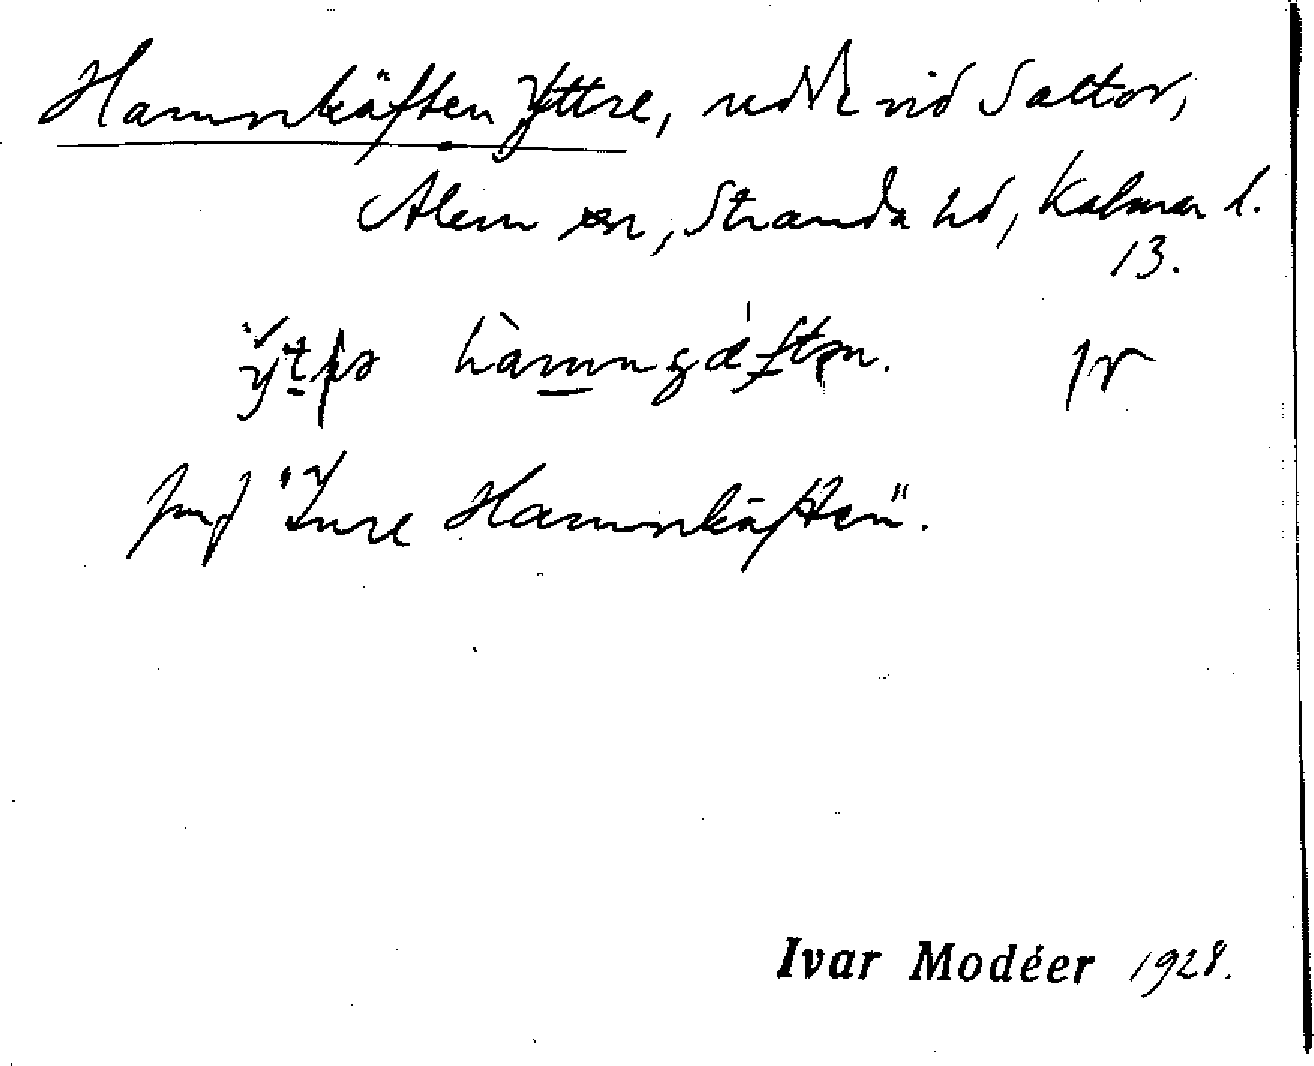 Hamnkäften Yttre, udde vid Saltor,
Ålem sn, Stranda hd, Kalmar l.
13.
Jmf "Inre Hamnkäften".
Ivar Modéer 1928.